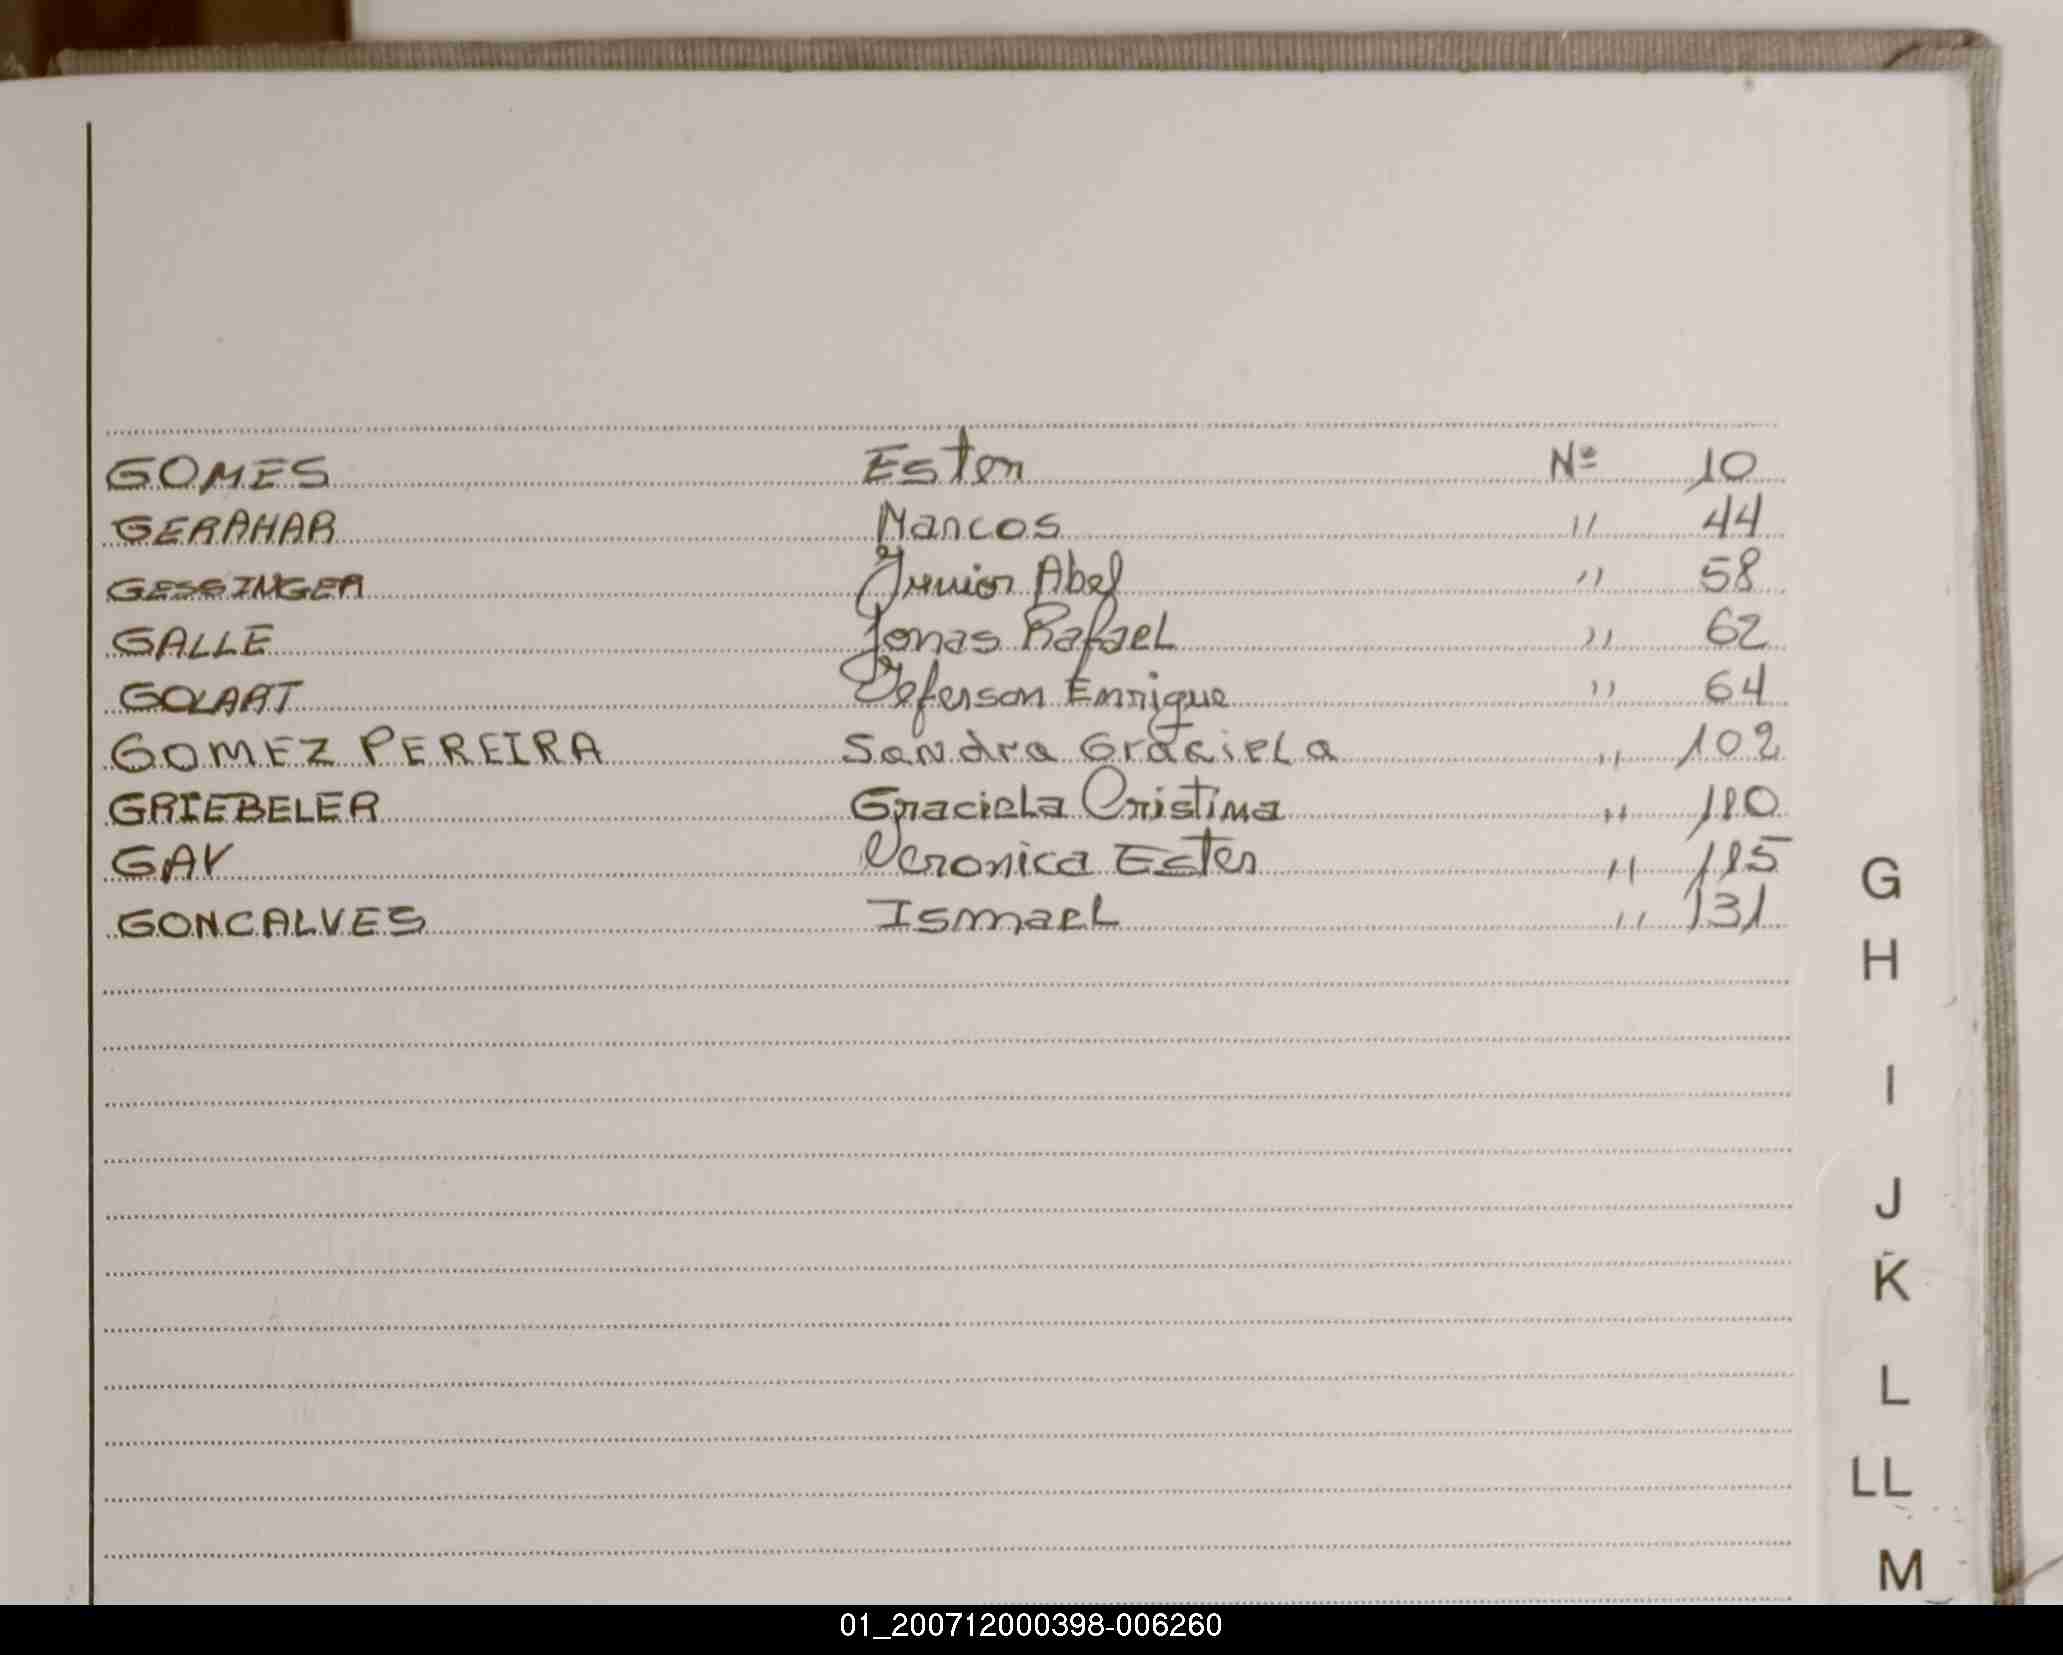 GOMES Ester Nº 10
GERAHAR Marcos " 44
GESSINGER Junior Abel " 58
GALLE Jonas Rafael " 62
GOLART Jeferson Enrique " 64
GOMEZ PEREIRA Sandra Graciela " 102
GRIEBELER Graciela Cristina " 110
GAY Veronica Ester " 115
GONCALVES Ismael " 131
G
H
I
J
K
L
LL
M
01_200712000398-006260